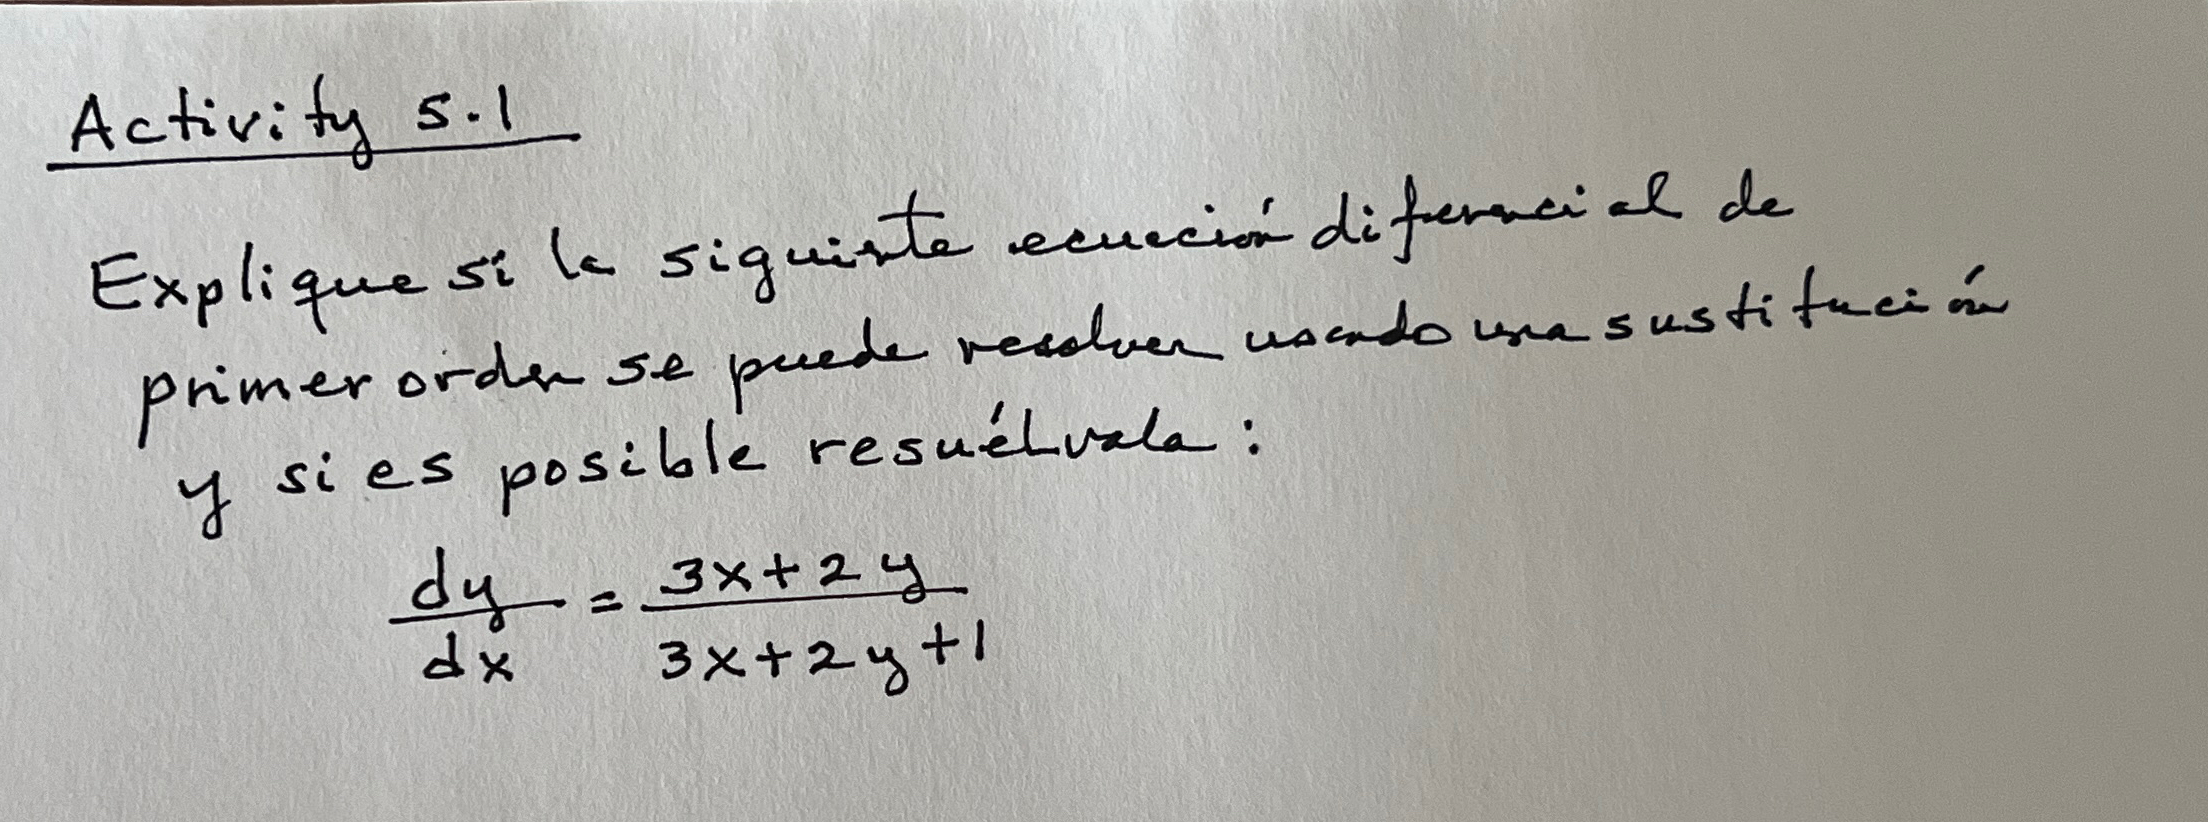 Activity 5.1
Explique si la siguiente ecuación diferencial de
primer orden se puede resolver usando una sustitución
y si es posible resuélvala:
dy/dx = (3x+2y)/(3x+2y+1)